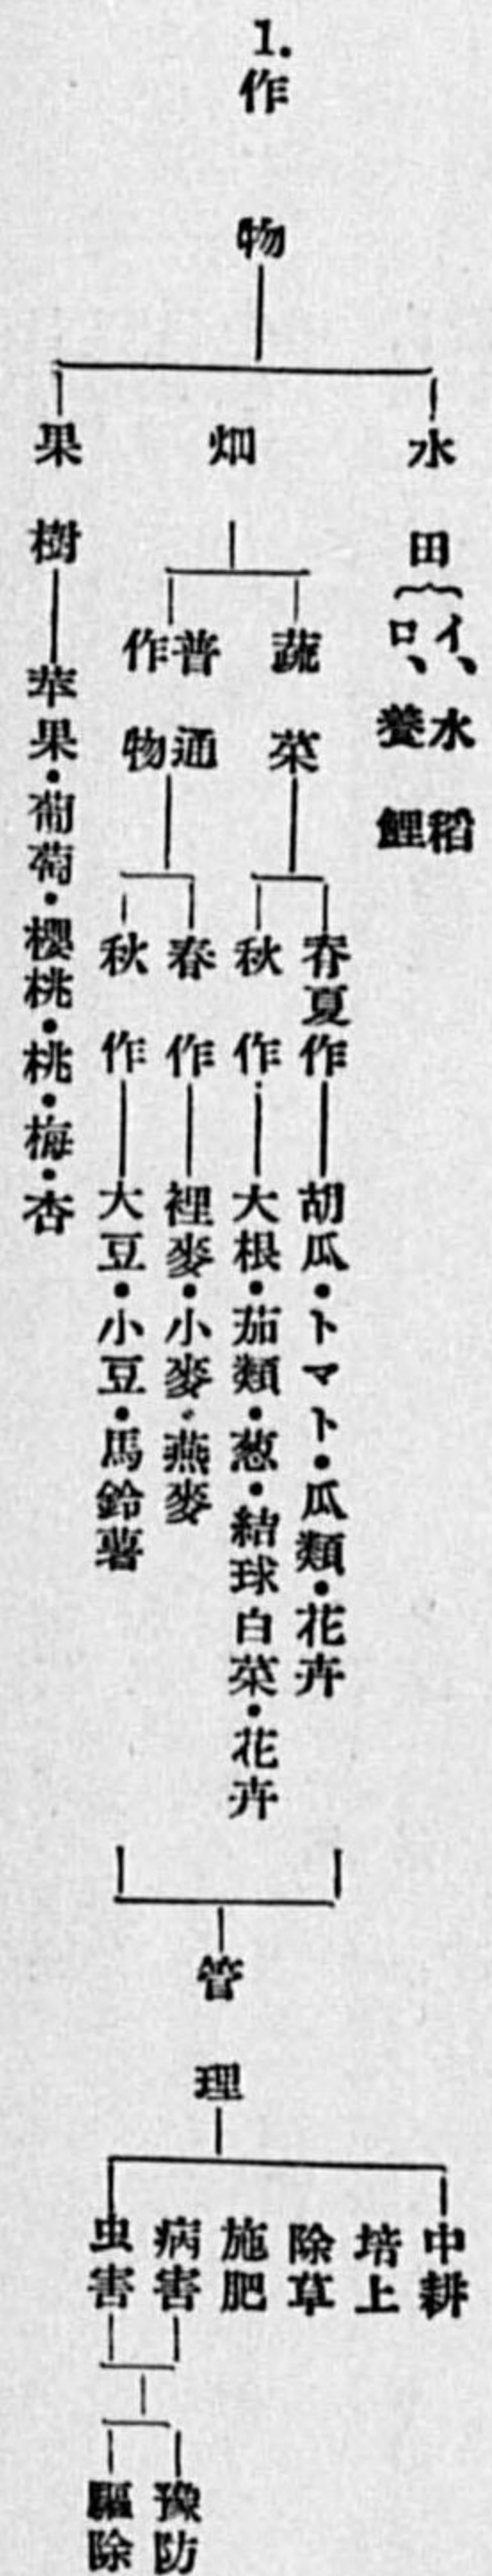 1.作物
水田
イ、水稻
ロ、養鯉
畑
蔬菜
春夏作
胡瓜・トマト・瓜類・花卉
秋作
大根・茄類・葱・結球白菜・花卉
普通
作物
春作
裡麥・小麥・燕麥
秋作
大豆・小豆・馬鈴薯
果樹
苹果・葡萄・櫻桃・桃・梅・杏
管理
中耕
培上
除草
施肥
病害
虫害
豫防
驅除